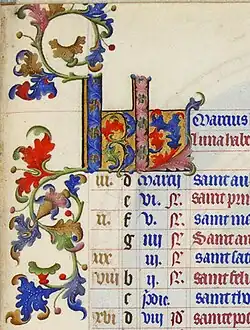 KL Marcius
Luna habe
iii. d Marcij saint au
e vi. N. saint pri
xi. f v. N. saint me
g iiij N. Saint a
xix iij. N. saint sat
viij b ij. N. saint feli
c pdie. saint
xvi d viij id saint pol